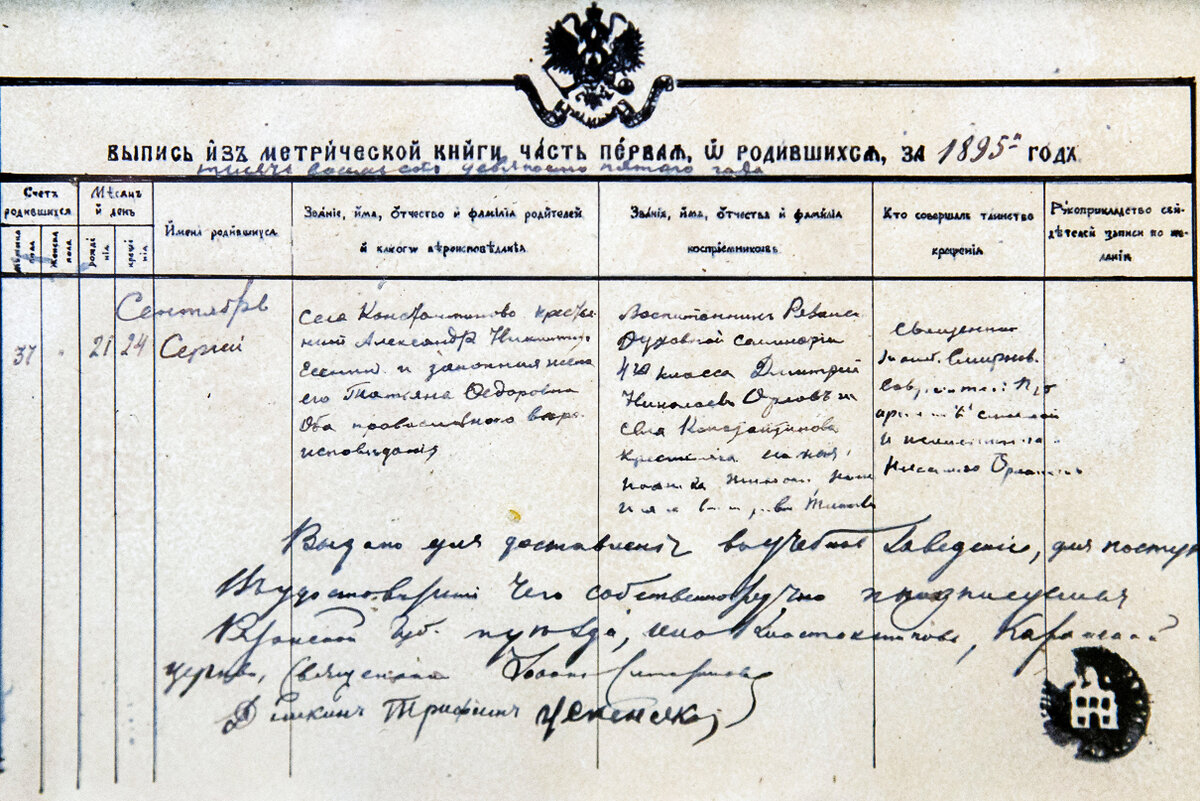 ВЫПИСЬ ИЗЪ МЕТРИЧЕСКОЙ КНИГИ, ЧАСТЬ ПЕРВАЯ, Ѿ РОДИВШИХСЯ, ЗА 1895й ГОДЪ
тысяча восемьсотъ девяносто пятаго года
Счетъ родившихся
Мѣсяцъ и день
Имена родившихся
Званіе, имя, отчество и фамилія родителей и какого вѣроисповѣданія
Званіе, имя, отчество и фамилія воспріемниковъ
Кто совершалъ таинство крещенія
Рукоприкладство свидѣтелей записи по желанію
Мужеска пола
Женска пола
рожденія
крещенія
Сентябрь
37 " 21 24 Сергій
Села Константиново крестья-
нинъ Александръ Никитинъ
Есенинъ и законная жена
его Татьяна Ѳедоровна
Оба православнаго веро-
исповѣданія
Воспитанникъ Рязанс
Духовной семинаріи
4го класса Дмитрій
Николаевъ Орловъ и
села Константинова
крестьянка
Священник
Смирнов
и
Выдано для доставленія въ учебное заведеніе, для поступ
Въ удостовѣреніи чего собственноручно подписуемся
Рязанской губ. и уѣзда, села Константинова, Казанской
церкви, Священникъ Іоаннъ Смирновъ